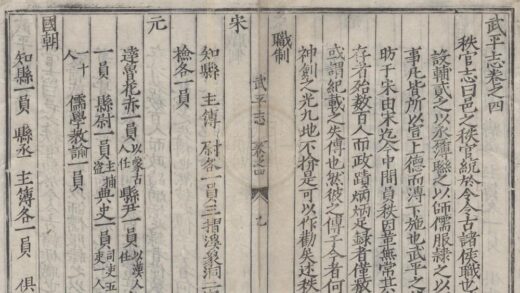 武平志卷之四
秩官志曰邑之秩官統於令古諸侯職也
設輔貳之以丞簿聯之以師儒服隸之以
事凡皆所以宣上德而溥下施也武平之
昉于宋由宋迄今中間員秩因革無常共
存者殆數百人而政蹟炳炳足錄者僅數
或謂紀載之失傳也然彼之傳于令者何
神剜之光九地不揜是可以作勸矣述秩
職制
宋
知縣 主簿 尉各一員三摺溪象洞二
武平志 卷之四 九
檢各一員
元
達魯花赤一員以蒙古人任 縣尹一員以漢人任
一員 縣尉一員主捕盜 典史一員司吏五人
十人 儒學教諭一員
國朝
知縣一員 縣丞 主簿各一員 俱